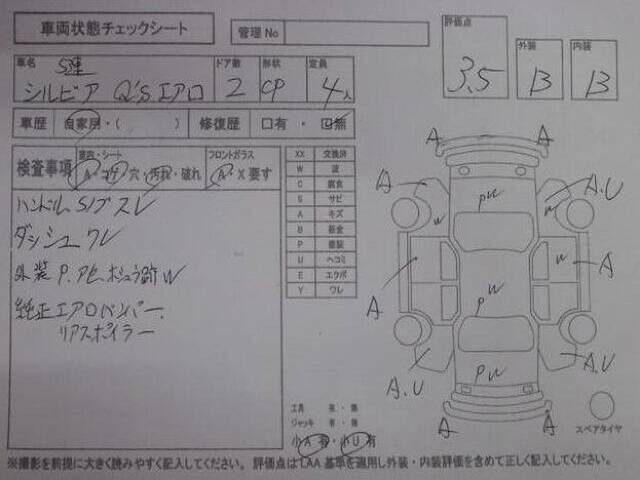 車両状態チェックシート
管理No
評価点
3.5
外装
B
内装
B
車名
S13
シルビア Q'S エアロ
ドア数
2
形状
CP
定員
4人
車歴 自家用・( ) 修復歴 口有・口無
検査事項
室内・シート
A・コゲ・穴・汚れ・破れ
フロントガラス
A・X要す
ハンドル、S/ブスレ
ダッシュワレ
外装 P、アセ、ホシュウ跡W
純正エアロバンパー、
リアスポイラー
XX 交換済
W 波
C 腐食
S サビ
A キズ
B 鈑金
P 塗装
U ヘコミ
E エクボ
Y ワレ
A A
A PW A.U
W W
A W W A
PW
A.U PW A.U
A A
スペアタイヤ
工具 有・無
ジャッキ 有・無
小A有・小U有
※撮影を前提に大きく読みやすく記入してください。 評価点はLAA基準を適用し外装・内装評価を含めて正しく記入してください。